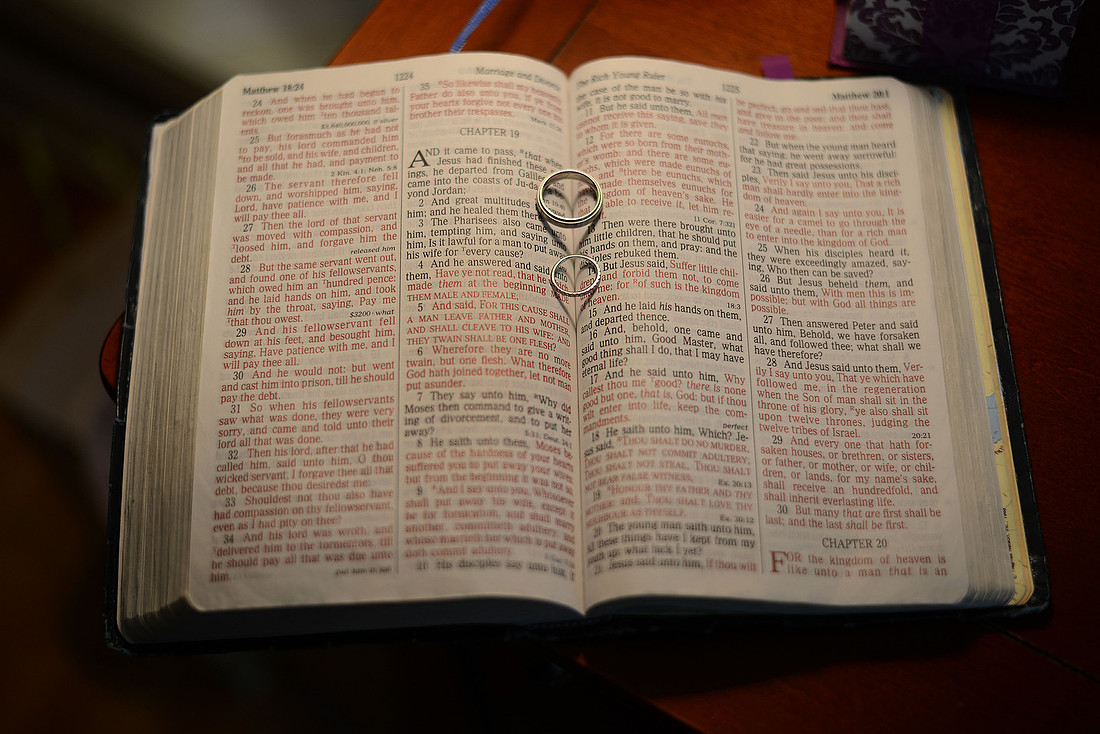 Matthew 18:24
1224
Marriage and
24 And when he had begun to
reckon, one was brought unto him,
which owed him ten thousand tal-
ents.
25 But forasmuch as he had not
to pay, his lord commanded him
to be sold, and his wife, and children,
and all that he had, and payment to
be made.
2 Kin. 4:1; Neh. 5:8
26 The servant therefore fell
down, and worshipped him, saying,
Lord, have patience with me, and I
will pay thee all.
27 Then the lord of that servant
was moved with compassion, and
loosed him, and forgave him the
debt.
released him
28 But the same servant went out,
and found one of his fellowservants,
which owed him an hundred pence:
and he laid hands on him, and took
him by the throat, saying, Pay me
that thou owest.
$3200 · what
29 And his fellowservant fell
down at his feet, and besought him,
saying, Have patience with me, and I
will pay thee all.
30 And he would not: but went
and cast him into prison, till he should
pay the debt.
31 So when his fellowservants
saw what was done, they were very
sorry, and came and told unto their
lord all that was done.
32 Then his lord, after that he had
called him, said unto him, O thou
wicked servant, I forgave thee all that
debt, because thou desiredst me:
33 Shouldest not thou also have
had compassion on thy fellowservant,
even as I had pity on thee?
34 And his lord was wroth, and
delivered him to the tormentors, till
he should pay all that was due unto
him.
35 So likewise shall my heavenly
Father do also unto you, if ye from
your hearts forgive not every one his
brother their trespasses.
CHAPTER 19
AND it came to pass, that when
Jesus had finished these
ings, he departed from Galilee
came into the coasts of Ju-
yond Jordan;
2 And great multitudes
him; and he healed them there
3 The Pharisees also came
him, tempting him, and saying unto
him, Is it lawful for a man to put away
his wife for every cause?
4 And he answered and said
them, Have ye not read, that he
made them at the beginning
THEM MALE AND FEMALE,
5 And said, FOR THIS CAUSE SHALL
A MAN LEAVE FATHER AND MOTHER,
AND SHALL CLEAVE TO HIS WIFE: AND
THEY TWAIN SHALL BE ONE FLESH?
6 Wherefore they are no more
twain, but one flesh. What therefore
God hath joined together, let not man
put asunder.
7 They say unto him, Why did
Moses then command to give a writ-
ing of divorcement, and to put her
away?
8 He saith unto them, Moses be-
cause of the hardness of your hearts
suffered you to put away your wives:
but from the beginning it was not so.
9 And I say unto you, Whosoever
shall put away his wife, except it
be for fornication, and shall marry
another, committeth adultery: and
whoso marrieth her which is put away
doth commit adultery.
10 His disciples say unto him, If
The Rich Young Ruler
1225
Matthew 20:1
the case of the man be so with his
wife, it is not good to marry.
11 But he said unto them, All men
cannot receive this saying, save they
to whom it is given.
12 For there are some eunuchs,
which were so born from their moth-
er's womb: and there are some eu-
nuchs, which were made eunuchs of
men: and there be eunuchs, which
made themselves eunuchs for
kingdom of heaven's sake. He
able to receive it, let him re-
1 Cor. 7:32
Then were there brought unto
him little children, that he should put
his hands on them, and pray: and the
disciples rebuked them.
But Jesus said, Suffer little chil-
dren, and forbid them not, to come
me: for of such is the kingdom
heaven.
18:3
15 And he laid his hands on them,
and departed thence.
16 And, behold, one came and
said unto him, Good Master, what
good thing shall I do, that I may have
eternal life?
17 And he said unto him, Why
callest thou me good? there is none
good but one, that is, God: but if thou
wilt enter into life, keep the com-
mandments.
perfect
18 He saith unto him, Which? Je-
sus said, THOU SHALT DO NO MURDER,
THOU SHALT NOT COMMIT ADULTERY,
THOU SHALT NOT STEAL, THOU SHALT
NOT BEAR FALSE WITNESS,
Ex. 20:13
19 HONOUR THY FATHER AND THY
MOTHER: and, THOU SHALT LOVE THY
NEIGHBOUR AS THYSELF.
Ex. 20:12
20 The young man saith unto him,
All these things have I kept from my
youth up: what lack I yet?
21 Jesus said unto him, If thou wilt
be perfect, go and sell that thou hast,
and give to the poor, and thou shalt
have treasure in heaven: and come
and follow me.
22 But when the young man heard
that saying, he went away sorrowful:
for he had great possessions.
23 Then said Jesus unto his disci-
ples, Verily I say unto you, That a rich
man shall hardly enter into the king-
dom of heaven.
24 And again I say unto you, It is
easier for a camel to go through the
eye of a needle, than for a rich man
to enter into the kingdom of God.
25 When his disciples heard it,
they were exceedingly amazed, say-
ing, Who then can be saved?
26 But Jesus beheld them, and
said unto them, With men this is im-
possible; but with God all things are
possible.
27 Then answered Peter and said
unto him, Behold, we have forsaken
all, and followed thee; what shall we
have therefore?
28 And Jesus said unto them, Ver-
ily I say unto you, That ye which have
followed me, in the regeneration
when the Son of man shall sit in the
throne of his glory, ye also shall sit
upon twelve thrones, judging the
twelve tribes of Israel.
20:21
29 And every one that hath for-
saken houses, or brethren, or sisters,
or father, or mother, or wife, or chil-
dren, or lands, for my name's sake,
shall receive an hundredfold, and
shall inherit everlasting life.
30 But many that are first shall be
last; and the last shall be first.
CHAPTER 20
FOR the kingdom of heaven is
like unto a man that is an